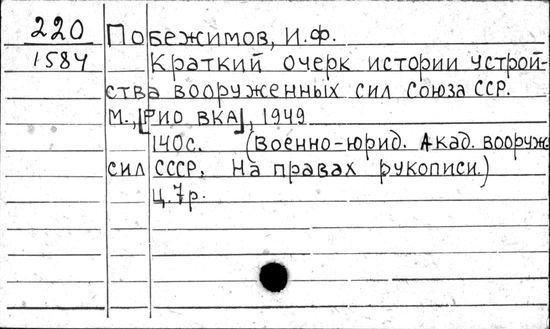 220
1584
Побежимов, И.Ф.
Краткий очерк истории устрой-
ства вооруженных сил Союза ССР.
М., [РИО ВКА], 1949
140с. (Военно-юрид. Акад. вооруж.
сил СССР. На правах рукописи.)
Ц. 7р.